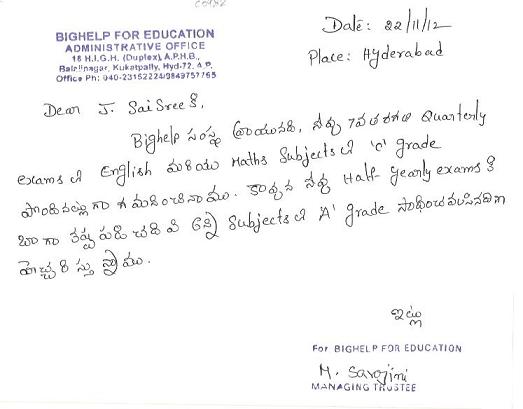 BIGHELP FOR EDUCATION
ADMINISTRATIVE OFFICE
16 H.I.G.H. (Duplex), A.P.H.B.,
Balajinagar, Kukatpally, Hyd-72. A.P.
Office Ph: 040-23152224/9849757765
Date: 22/11/12
Place: Hyderabad
Dear J. SaiSree కి,
Bighelp సంస్థ వ్రాయునది, నీవు 7వ తరగతి Quarterly
exams లో English మరియు Maths Subjects లో 'C' grade
పొందినట్లు గా గమనించినాము. కావున నీవు Half Yearly exams కి
బాగా కష్టపడి చదివి అన్ని Subjects లో 'A' grade సాధించవలసినదిగా
హెచ్చరిస్తున్నాము.
ఇట్లు
For BIGHELP FOR EDUCATION
M. Sarojini
MANAGING TRUSTEE